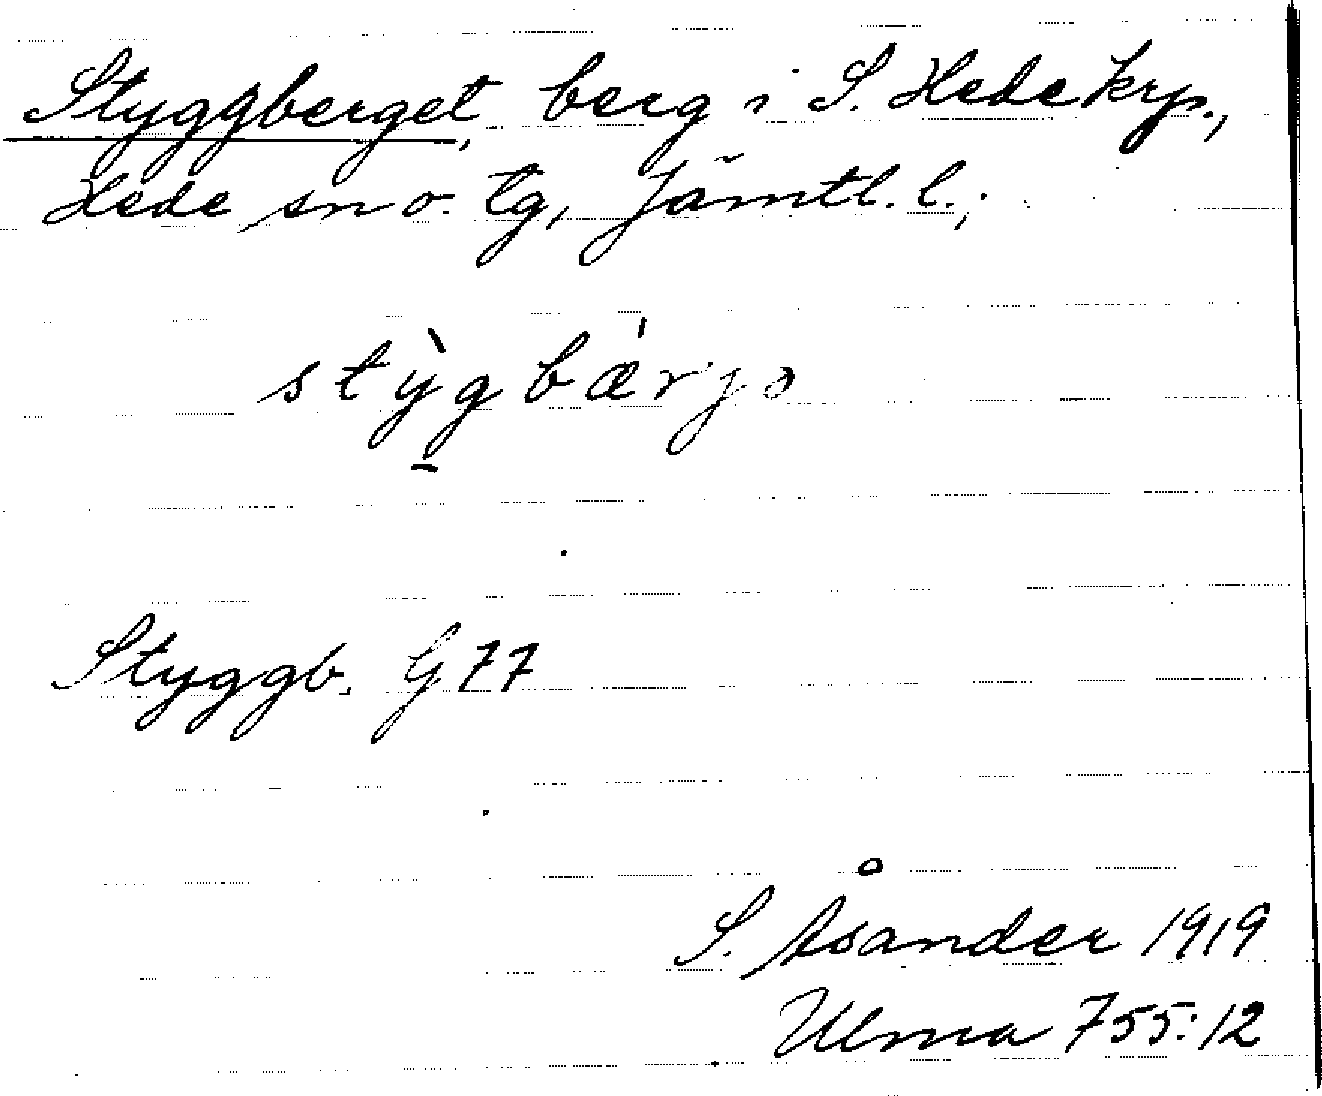 Styggberget, berg i S. Hede krp.,
Hede sn o. tg, Jämtl. l.;
stỳgbǽrjə
Styggb. G 77
S. Åsander 1919
Ulma 755:12